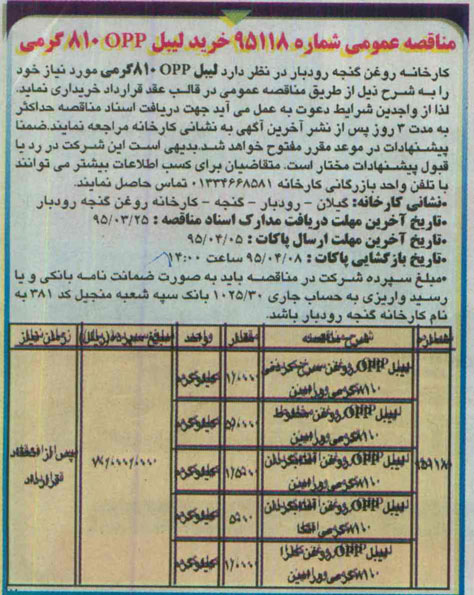 مناقصه عمومی شماره ۹۵۱۱۸ خرید لیبل OPP ۸۱۰ گرمی
کارخانه روغن گنجه رودبار در نظر دارد لیبل OPP ۸۱۰گرمی مورد نیاز خود
را به شرح ذیل از طریق مناقصه عمومی در قالب عقد قرارداد خریداری نماید.
لذا از واجدین شرایط دعوت به عمل می آید جهت دریافت اسناد مناقصه حداکثر
به مدت ۳ روز پس از نشر آخرین آگهی به نشانی کارخانه مراجعه نمایند.ضمنا
پیشنهادات در موعد مقرر مفتوح خواهد شد.بدیهی است این شرکت در رد یا
قبول پیشنهادات مختار است. متقاضیان برای کسب اطلاعات بیشتر می توانند
با تلفن واحد بازرگانی کارخانه ۰۱۳۳۴۶۶۸۵۸۱ تماس حاصل نمایند.
•نشانی کارخانه: گیلان - رودبار - گنجه - کارخانه روغن گنجه رودبار
•تاریخ آخرین مهلت دریافت مدارک اسناد مناقصه : ۹۵/۰۳/۲۵
•تاریخ آخرین مهلت ارسال پاکات : ۹۵/۰۴/۰۵
•تاریخ بازگشایی پاکات : ۹۵/۰۴/۰۸ ساعت ۱۴:۰۰
•مبلغ سپرده شرکت در مناقصه باید به صورت ضمانت نامه بانکی و یا
رسید واریزی به حساب جاری ۱۰۲۵/۳۰ بانک سپه شعبه منجیل کد ۳۸۱ به
نام کارخانه گنجه رودبار باشد.
شماره شرح مناقصه مقدار واحد مبلغ سپرده(ریال) زمان نیاز
لیبل OPP روغن سرخ کردنی
۸۱۰گرمی ورامین کیلوگرم
لیبل OPP روغن مخلوط
۸۱۰گرمی ورامین کیلوگرم
۹۵۱۱۸ لیبل OPP روغن آفتابگردان
۸۱۰گرمی ورامین کیلوگرم پس از انعقاد
قرارداد
لیبل OPP روغن آفتابگردان
۸۱۰گرمی کیلوگرم
لیبل OPP روغن
۸۱۰گرمی ورامین کیلوگرم